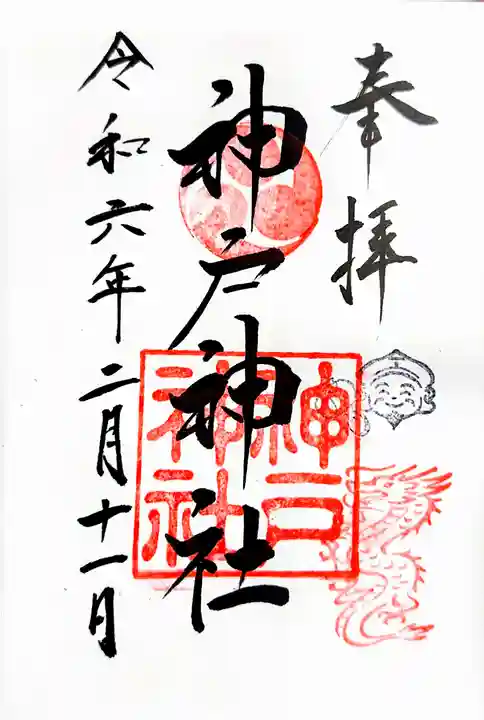 奉拝
神戸神社
神戸
神社
令和六年二月十一月